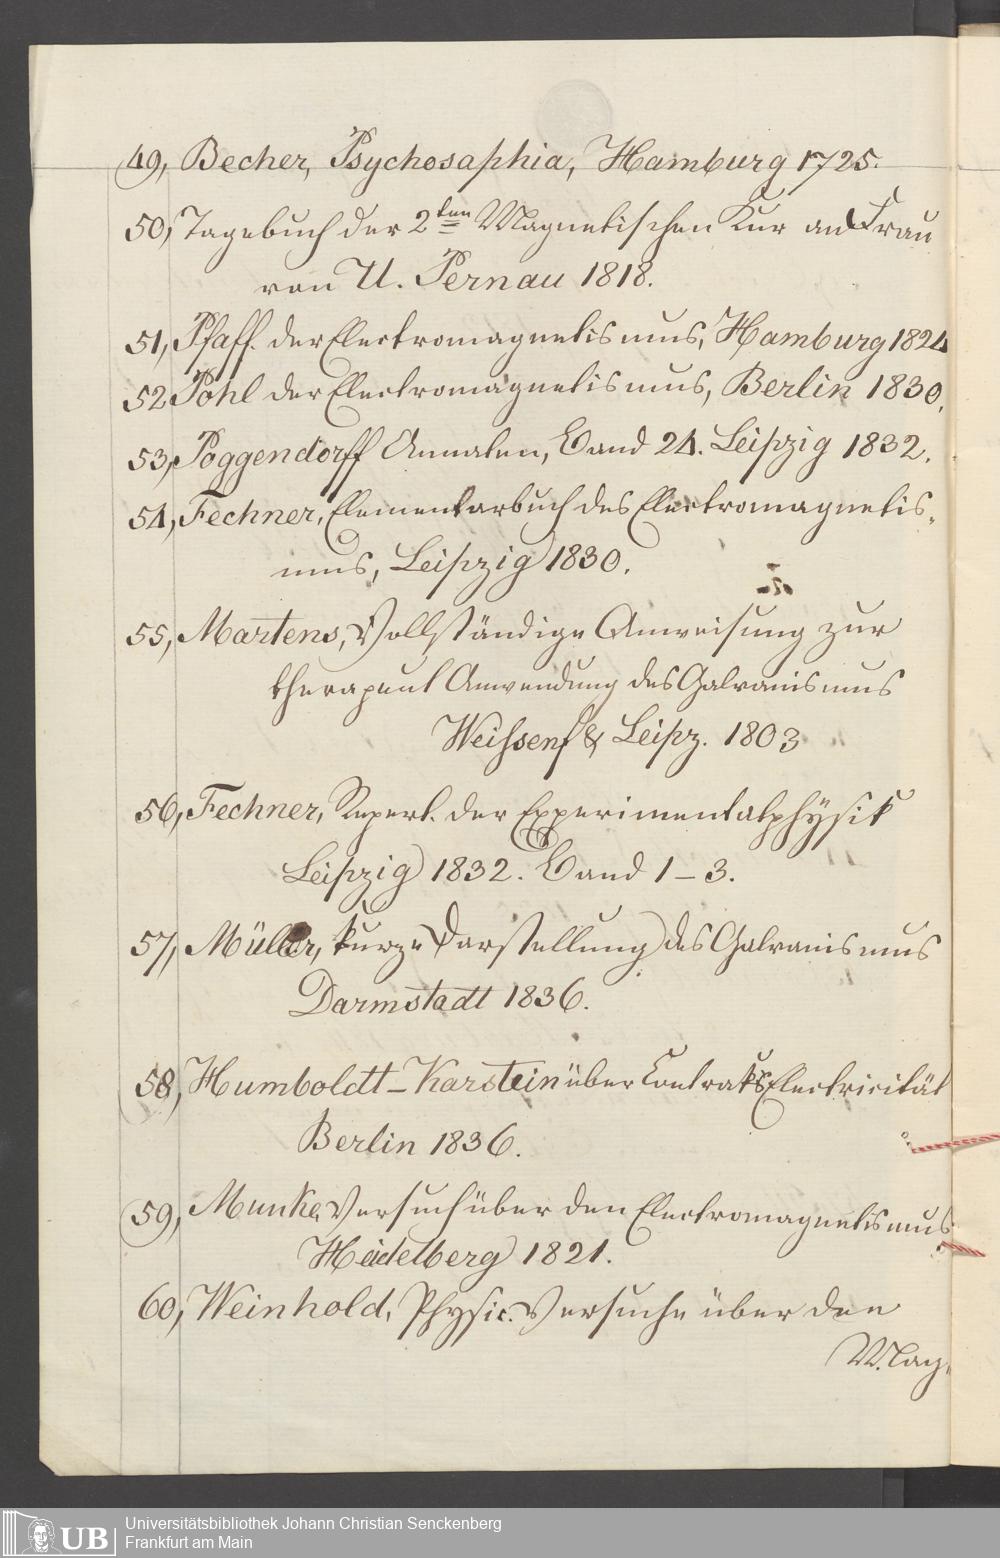 49, Becher, Psychosaphia, Hamburg 1725.
50, Tagebuch der 2ten Magnetischen Kur an Frau
von U. Pernau 1818.
51, Pfaff. der Electromagnetismus, Hamburg 1824
52 Pohl der Electromagnetismus, Berlin 1830.
53, Poggendorff Annalen, Band 24. Leipzig 1832.
54, Fechner, Elementarbuch des Electromagnetis-
mus, Leipzig 1830.
55, Martens, Vollständige Anweisung zur
therapeut Anwendung des Galvanismus
Weissenf & Leipz. 1803
56, Fechner, Repert. der Experimentalphÿsik
Leipzig 1832. Band 1-3.
57, Müller, kurze Darstellung des Galvanismus
Darmstadt 1836.
58, Humboldt-Karstein über Electricität
Berlin 1836.
59, Munke, Versuch über den Electromagnetismus
Heidelberg 1821.
60, Weinhold, Physic. Versuche über den
Mag-
UB
Universitätsbibliothek Johann Christian Senckenberg
Frankfurt am Main